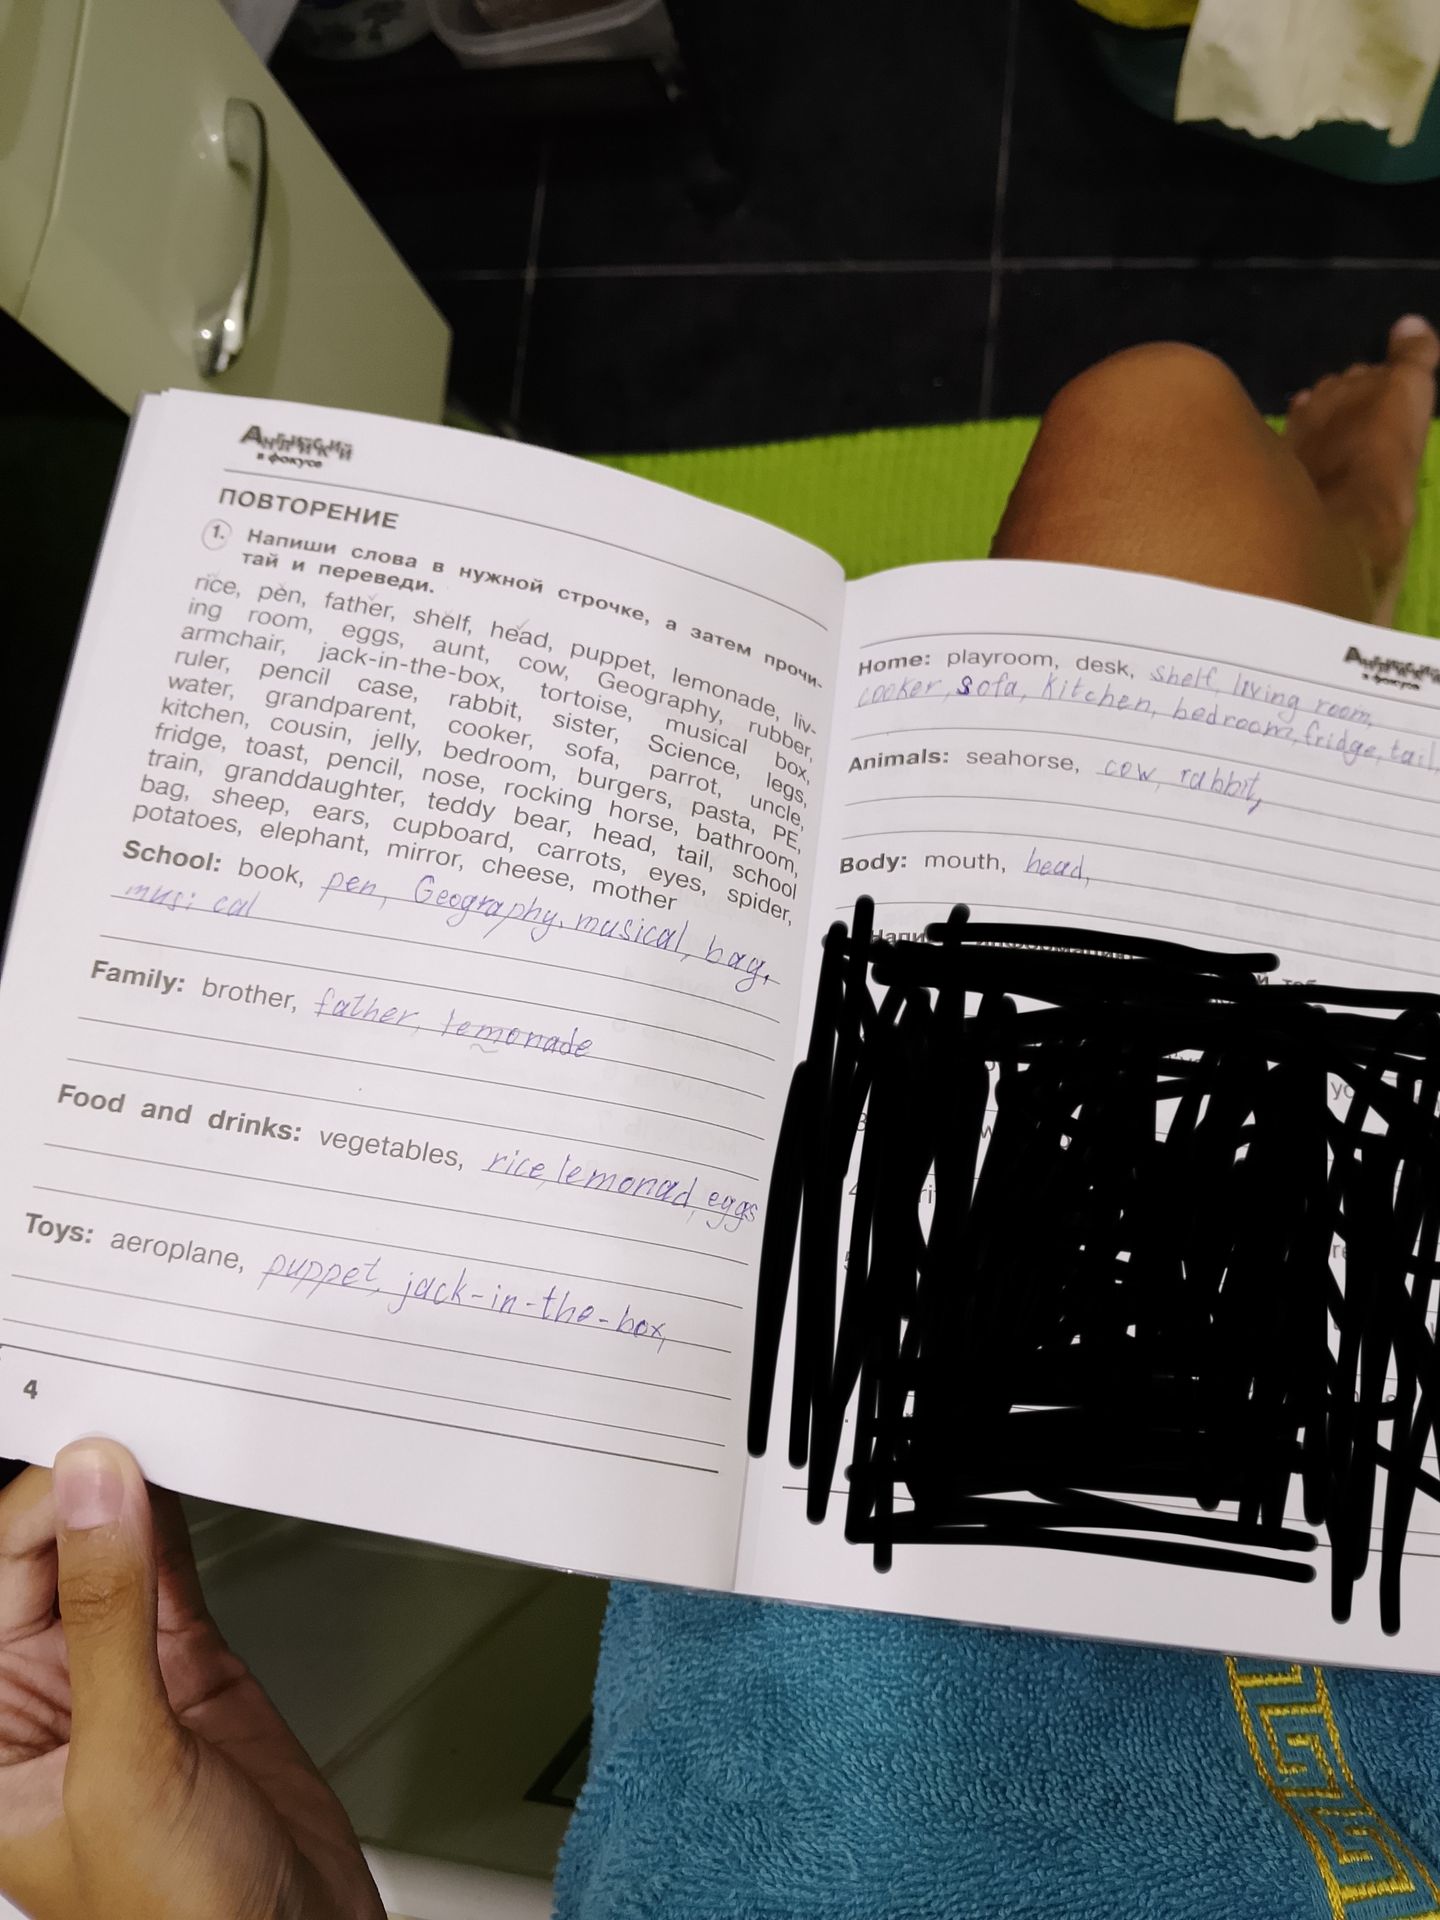 Английский
в фокусе
ПОВТОРЕНИЕ
1. Напиши слова в нужной строчке, а затем прочи-
тай и переведи.
rice, pen, father, shelf, head, puppet, lemonade, liv-
ing room, eggs, aunt, cow, Geography, rubber,
armchair, jack-in-the-box, tortoise, musical box,
ruler, pencil case, rabbit, sister, Science, legs,
water, grandparent, cooker, sofa, parrot, uncle,
kitchen, cousin, jelly, bedroom, burgers, pasta, PE,
fridge, toast, pencil, nose, rocking horse, bathroom,
train, granddaughter, teddy bear, head, tail, school
bag, sheep, ears, cupboard, carrots, eyes, spider,
potatoes, elephant, mirror, cheese, mother
School: book, pen, Geography, musical, bag,
musical
Family: brother, father, lemonade
Food and drinks: vegetables, rice, lemonad, eggs
Toys: aeroplane, puppet, jack-in-the-box,
4
Английский
в фокусе
Home: playroom, desk, shelf, living room,
cooker, sofa, kitchen, bedroom, fridge, tail,
Animals: seahorse, cow, rabbit,
Body: mouth, head,